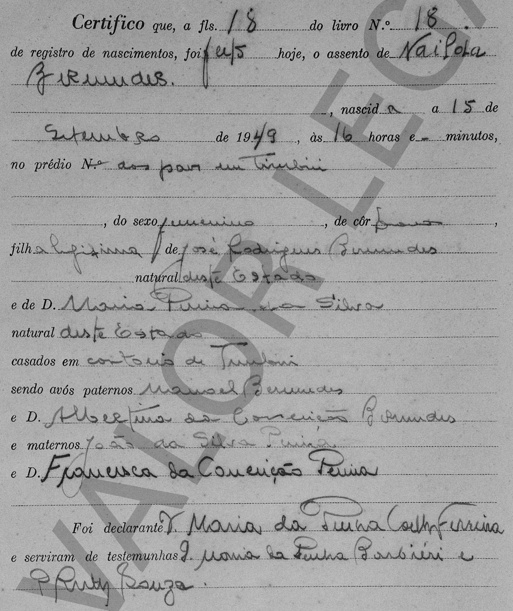 Certifico que, a fls. 18 do livro N.º 18.
de registro de nascimentos, foi feito hoje, o assento de Nailda
Bermudes.
, nascida a 15 de
Setembro de 1949, às 16 horas e - minutos,
no prédio N.º dos pais em Timbui
, do sexo femenino, de côr
filha legitima de José Rodrigues Bermudes
natural deste Estado
e de D. Maria Pereira da Silva
natural deste Estado
casados em cartorio de Timbui
sendo avós paternos Manoel Bermudes
e D. Albertina da Conceição Bermudes
e maternos João da Silva Pereira
e D. Francisca da Conceição Pereira
Foi declarante Maria da Penha Ferreira
e serviram de testemunhas Maria da Penha Barbiéri e
Souza.
VALOR LEGA